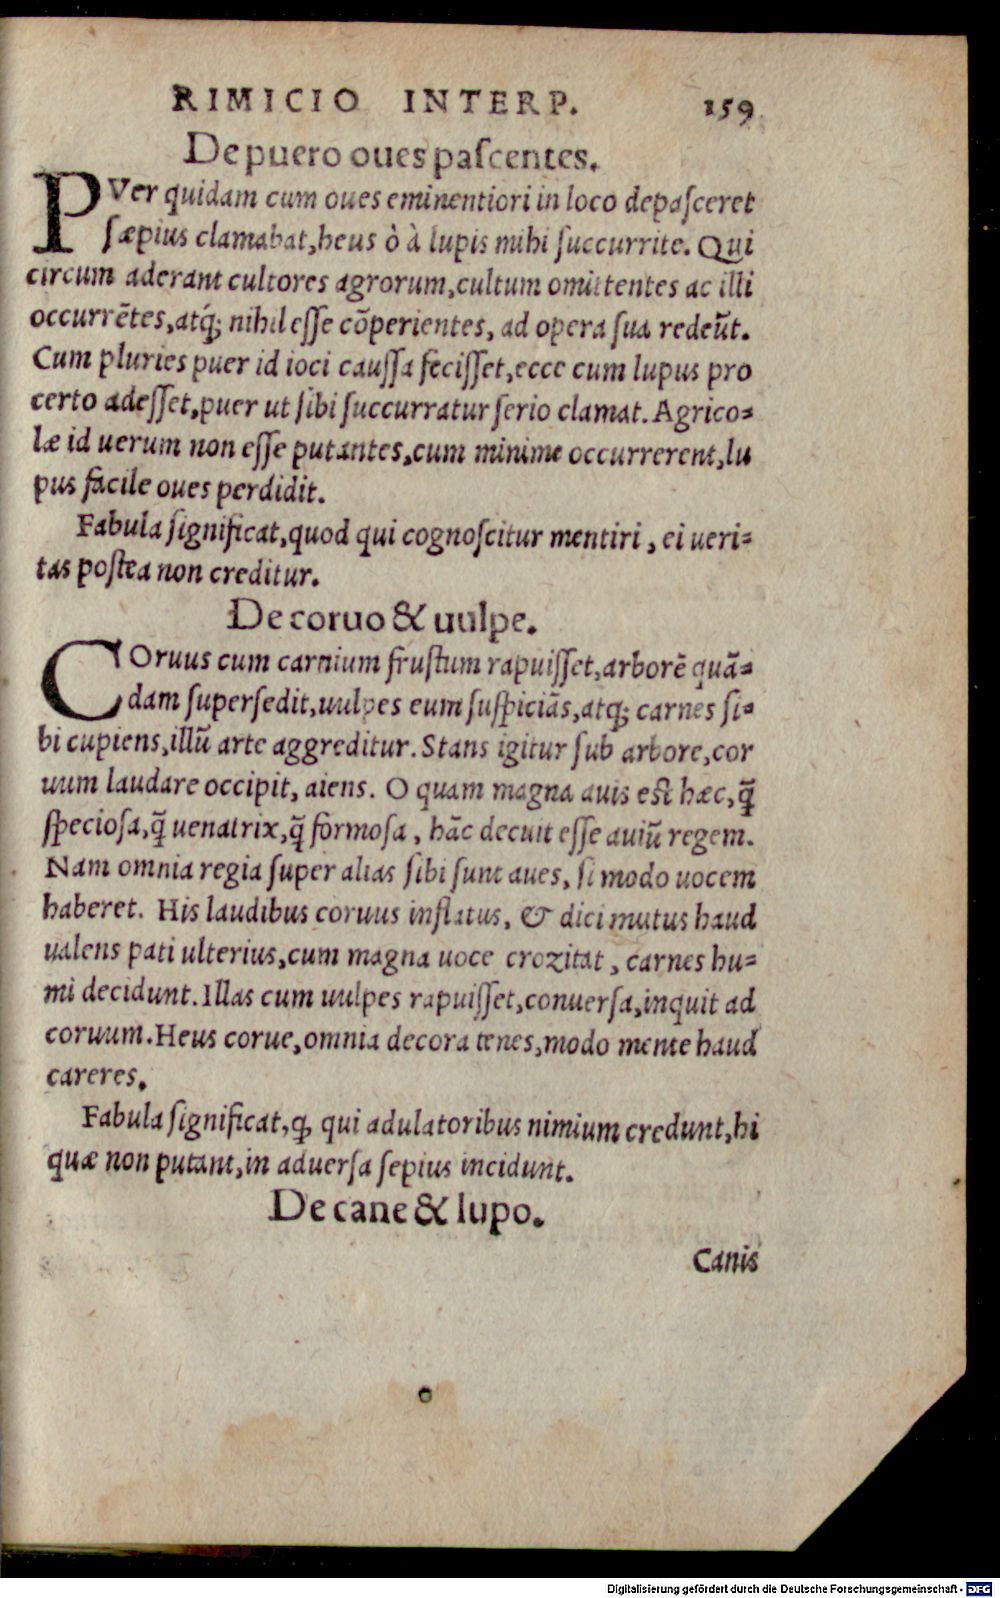 RIMICIO INTERP. 159
De puero oues pascentes.
PVer quidam cum oues eminentiori in loco depasceret
sæpius clamabat, heus ò à lupis mihi succurrite. Qui
circum aderant cultores agrorum, cultum omittentes ac illi
occurrētes, atq́; nihil esse cōperientes, ad opera sua redeūt.
Cum pluries puer id ioci caussa fecisset, ecce cum lupus pro
certo adesset, puer ut sibi succurratur serio clamat. Agrico-
læ id uerum non esse putantes, cum minime occurrerent, lu
pus facile oues perdidit.
Fabula significat, quod qui cognoscitur mentiri, ei ueri-
tas postea non creditur.
De coruo & uulpe.
COruus cum carnium frustum rapuisset, arborē quā-
dam supersedit, uulpes eum suspiciās, atq; carnes si-
bi cupiens, illū arte aggreditur. Stans igitur sub arbore, cor
uum laudare occipit, aiens. O quam magna auis est hæc, q̄
speciosa, q̄ uenatrix, q̄ formosa, hāc decuit esse auiū regem.
Nam omnia regia super alias sibi sunt aues, si modo uocem
haberet. His laudibus coruus inflatus, & dici mutus haud
ualens pati ulterius, cum magna uoce crozitat, carnes hu-
mi decidunt. Illas cum uulpes rapuisset, conuersa, inquit ad
coruum. Heus corue, omnia decora tenes, modo mente haud
careres.
Fabula significat, ꝙ qui adulatoribus nimium credunt, hi
quæ non putant, in aduersa sepius incidunt.
De cane & lupo.
Canis
Digitalisierung gefördert durch die Deutsche Forschungsgemeinschaft - DFG